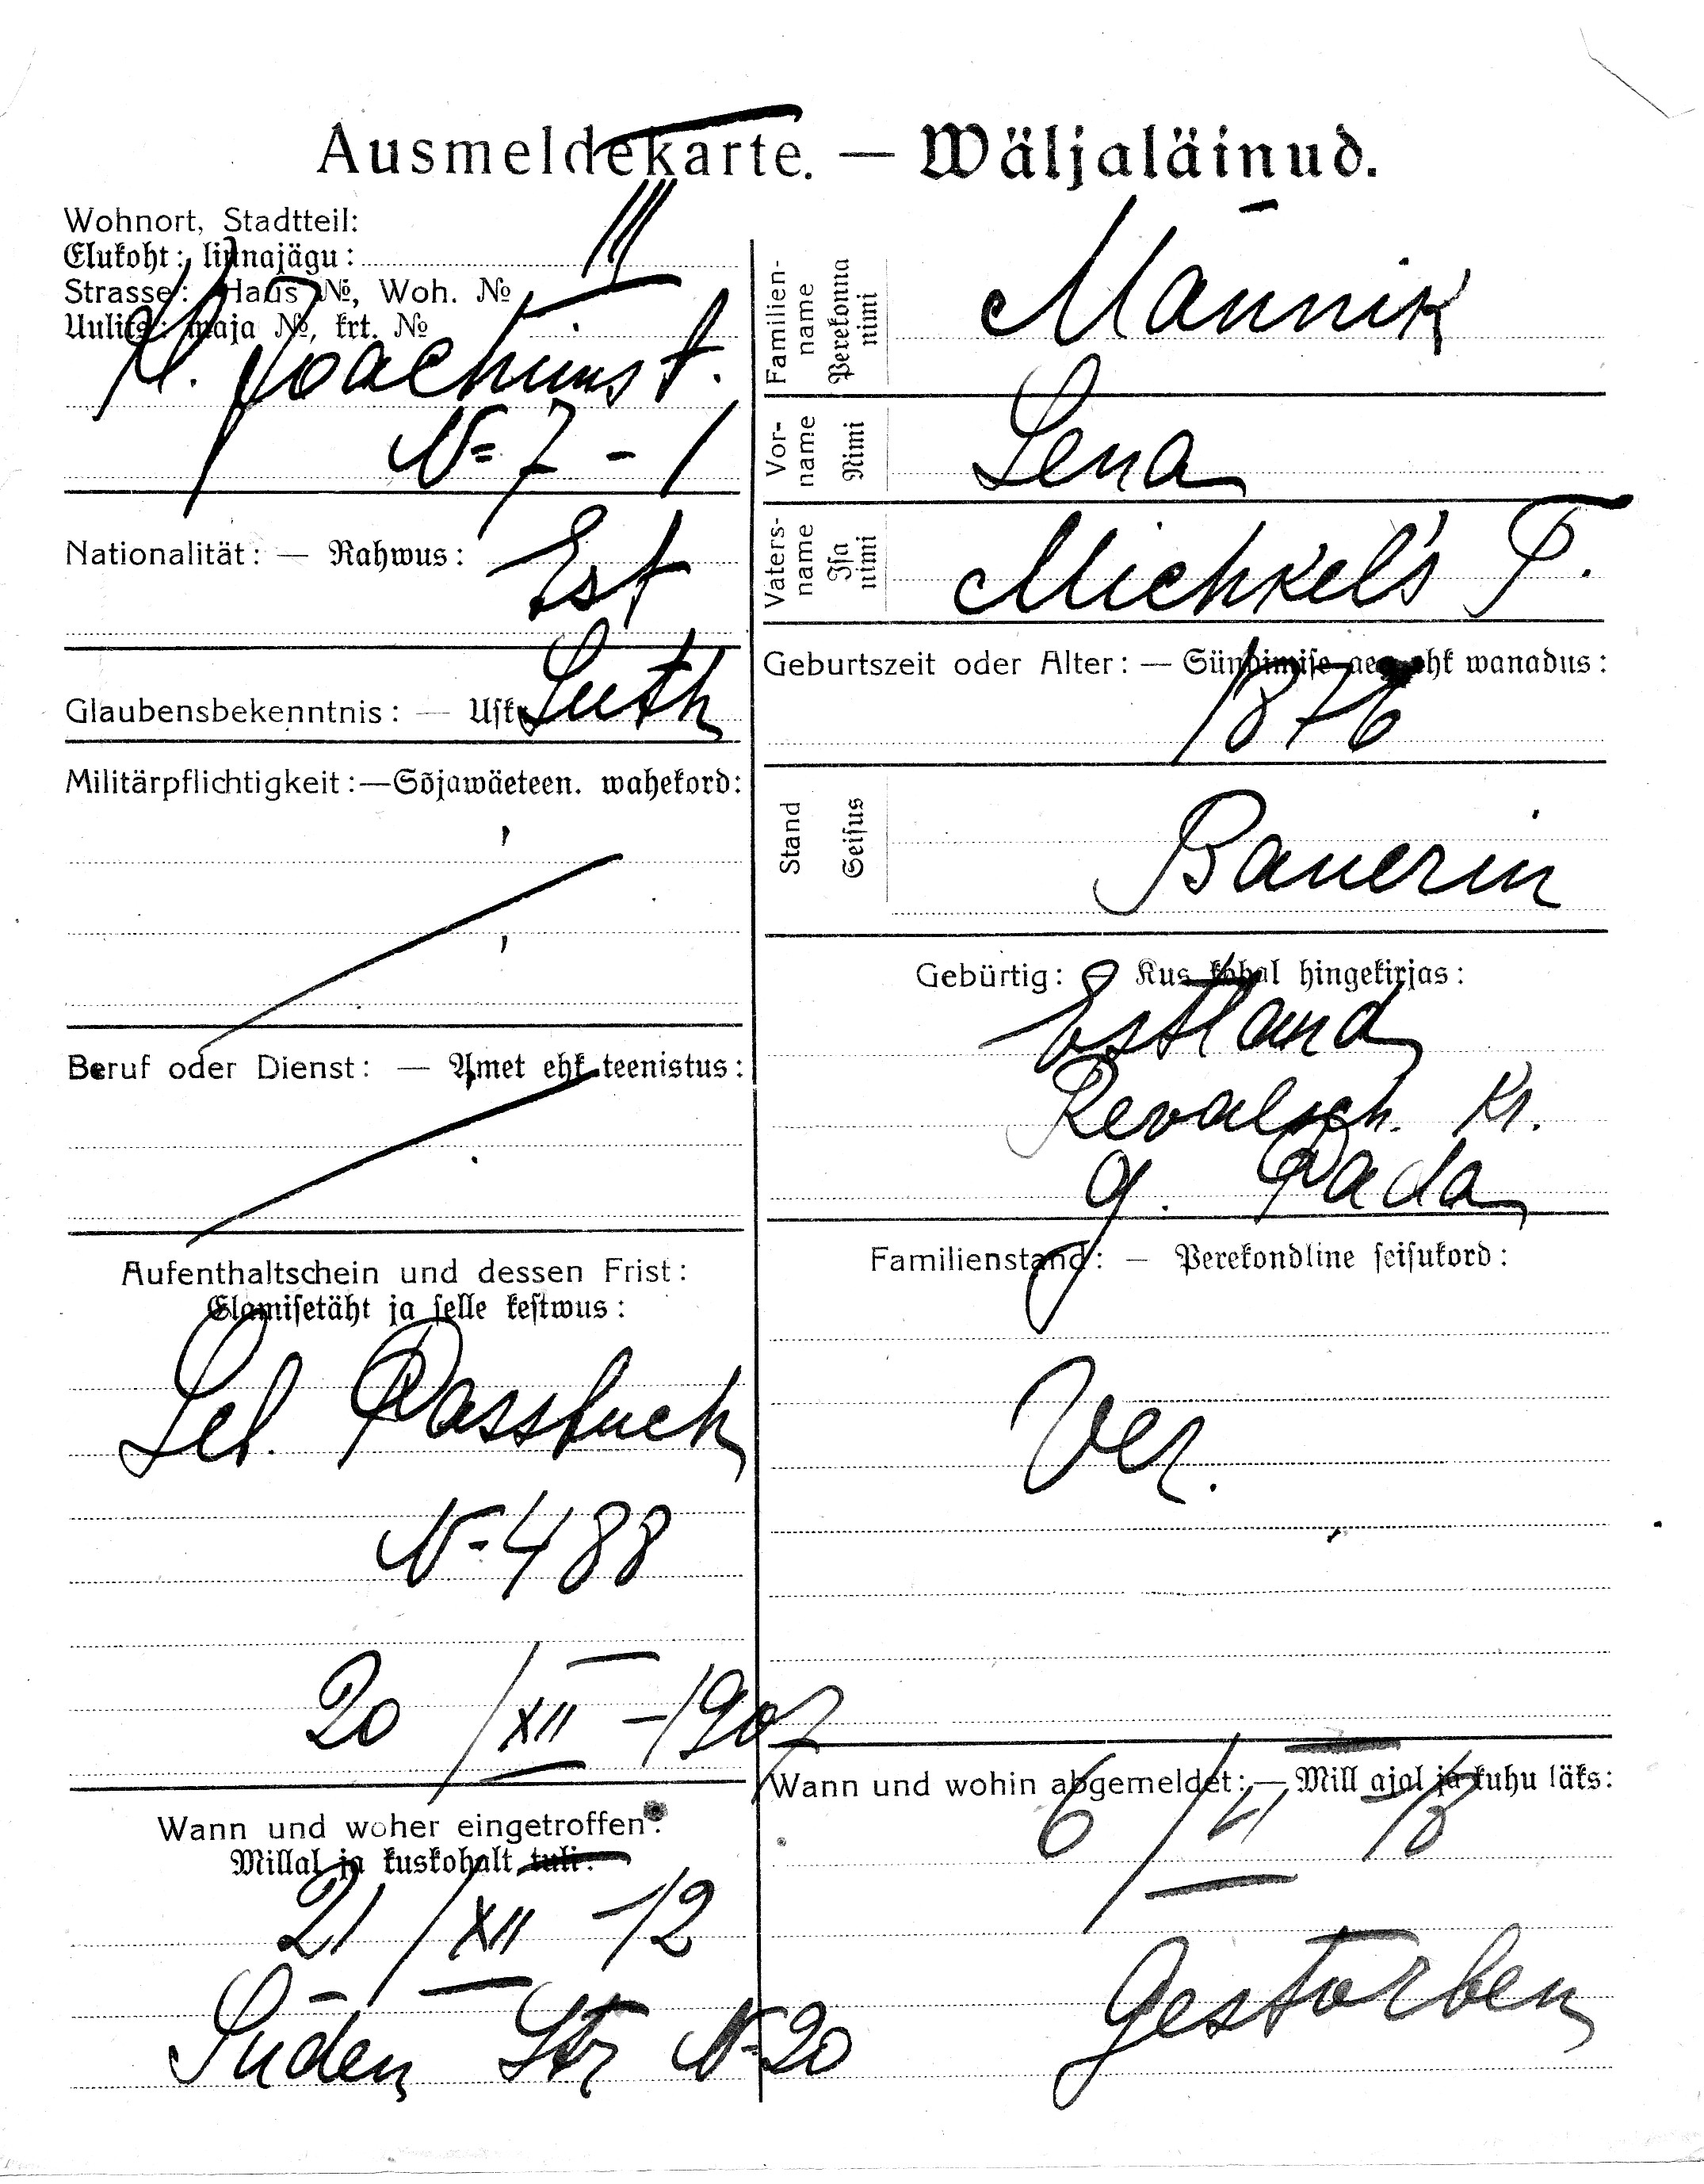 Ausmeldekarte. — Wäljaläinud.
Wohnort, Stadtteil:
Elukoht: linnajägu: III
Strasse: Haus №, Woh. №
Uulits: maja №, krt. №
Kl. Joachimst.
N= 7 - 1
Nationalität: — Rahwus: Est
Glaubensbekenntnis: — Usk: Luth
Militärpflichtigkeit:—Sõjawäeteen. wahekord:
Beruf oder Dienst: — Amet ehk teenistus:
Aufenthaltschein und dessen Frist:
Elamisetäht ja selle kestwus:
Leb. Passbuch
N-488
20/XII-1907
Wann und woher eingetroffen:
Millal ja kuskohalt tuli:
21/XII-12
Süden Str N-20
Familienname
Perekonna nimi
Männik
Vorname
Nimi
Lena
Vatersname
Isa nimi
Michkel's T.
Geburtszeit oder Alter: — Sündimise aeg ehk wanadus:
1876
Stand
Seisus
Bauerin
Gebürtig: — Kus kohal hingekirjas:
Estland
Revalsch. Kr.
g. Pada
Familienstand: — Perekondline seisukord:
Ver.
Wann und wohin abgemeldet:—Mill ajal ja kuhu läks:
Gestorben